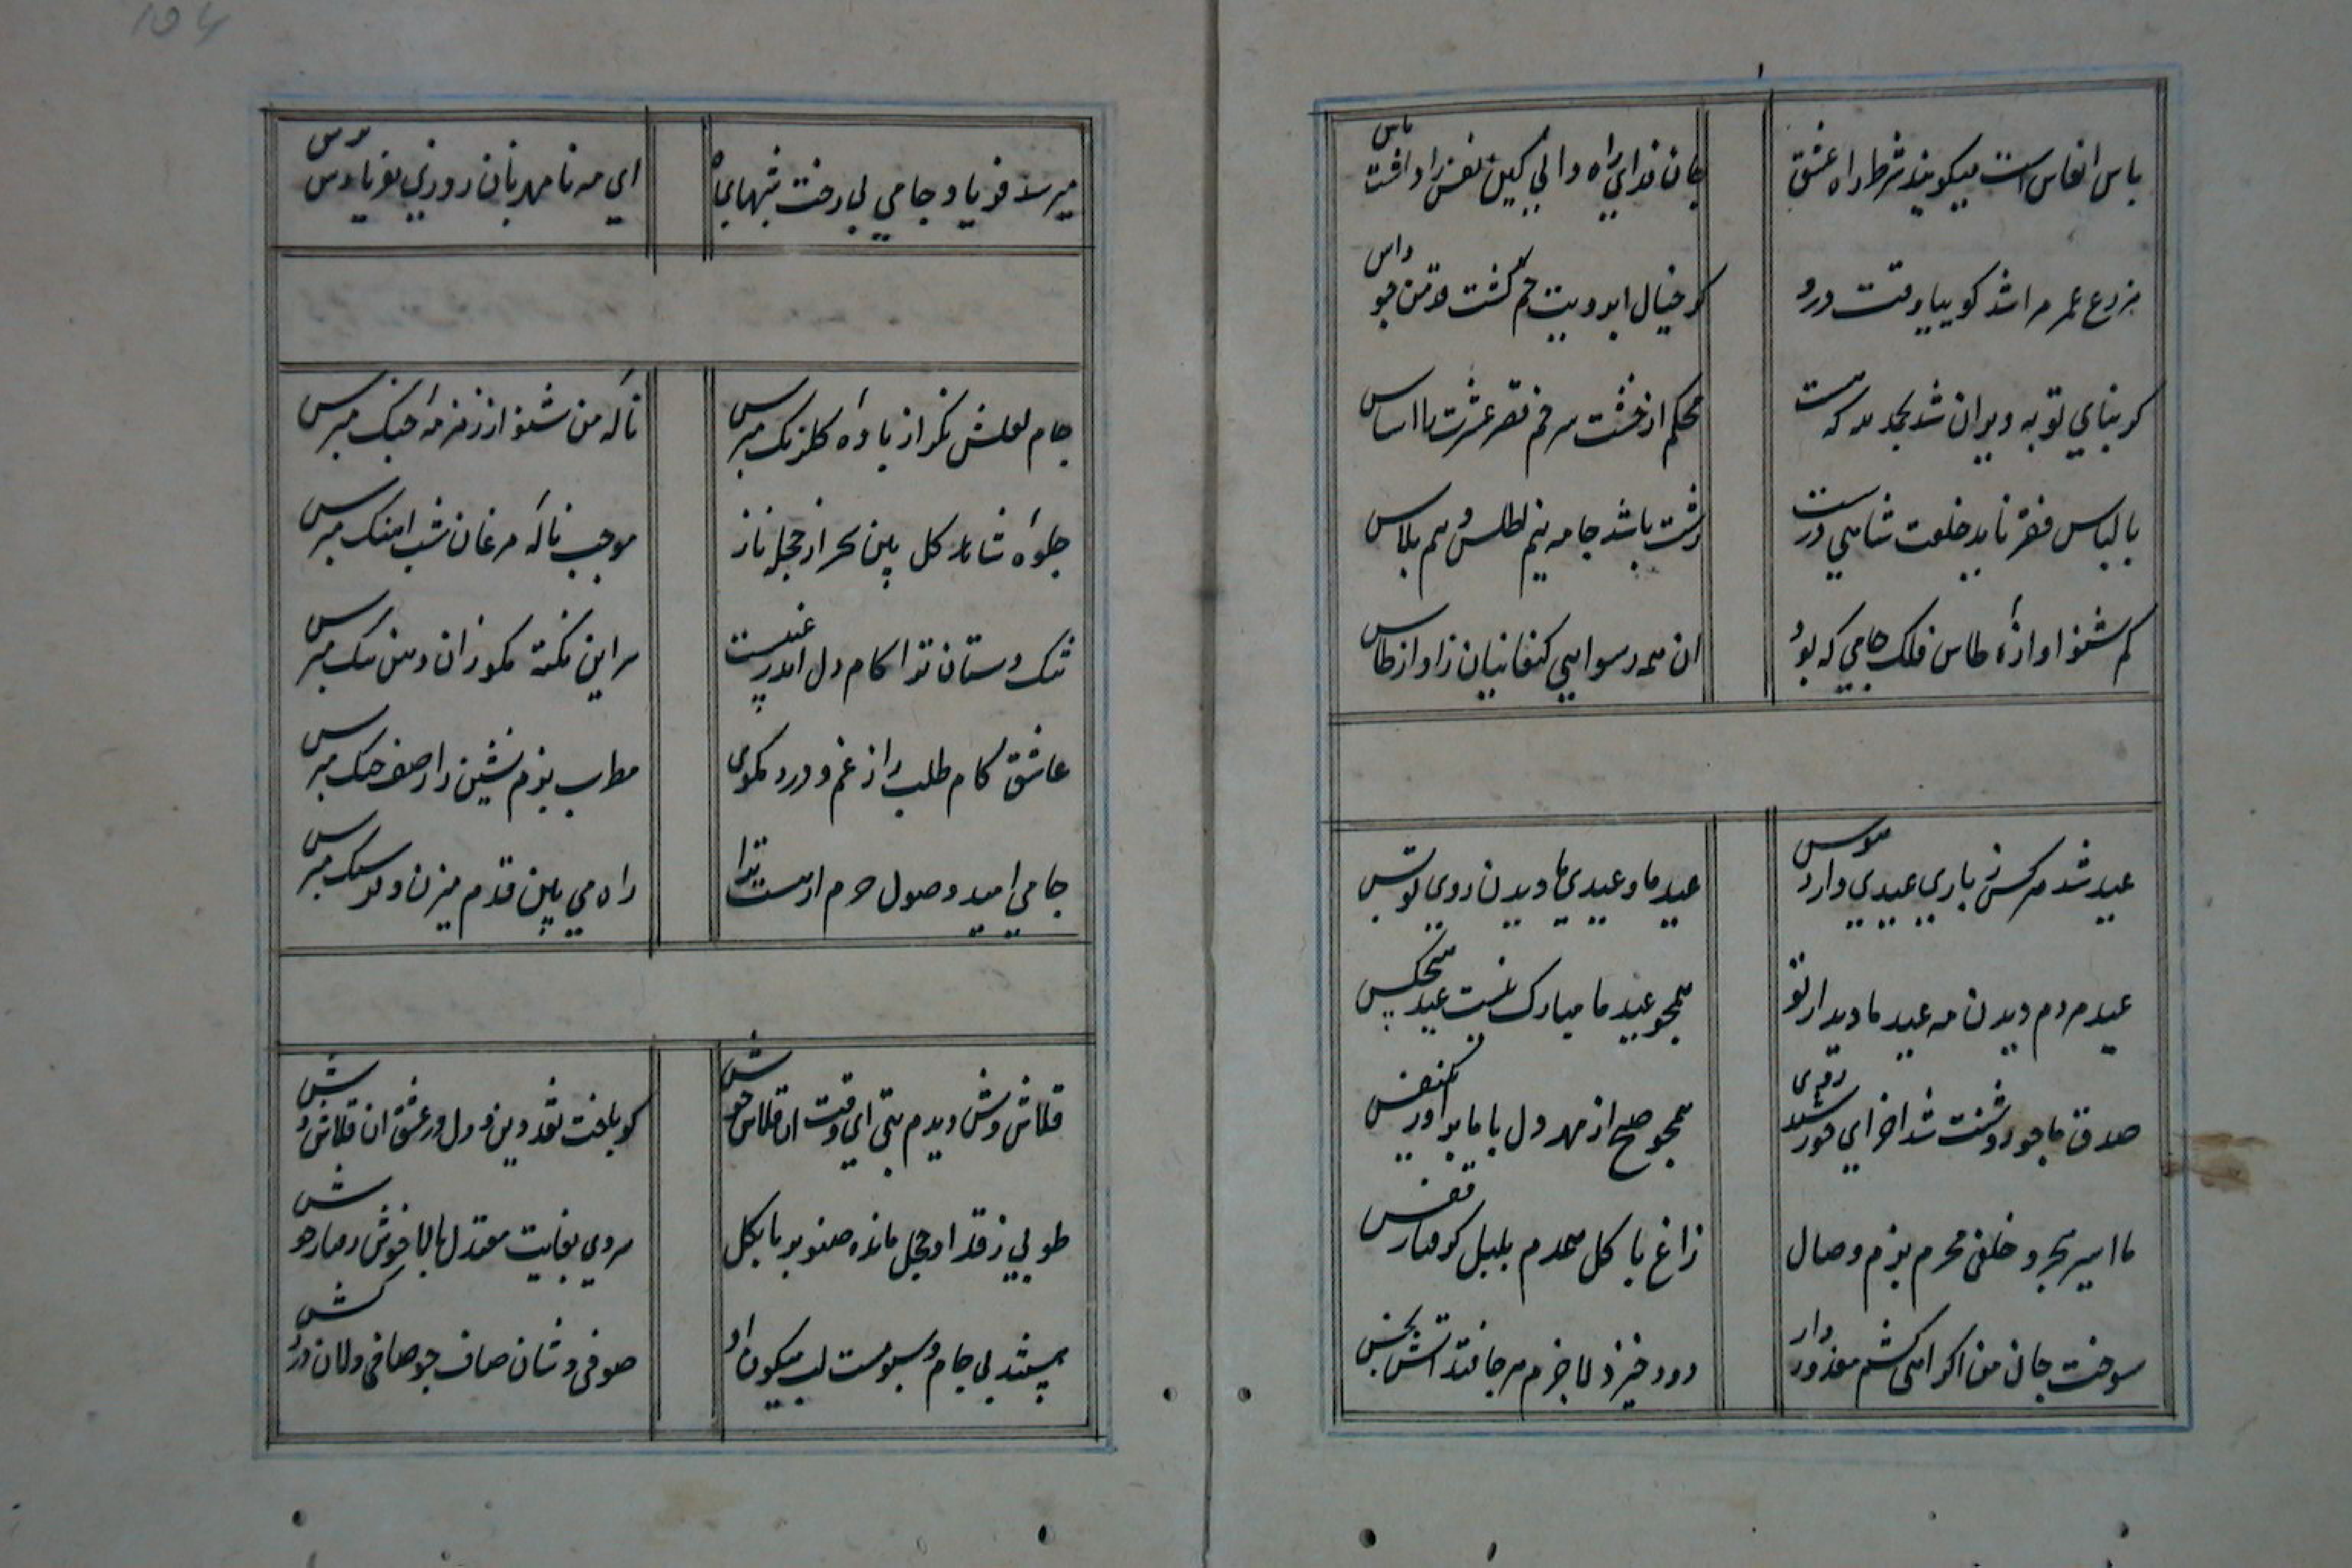 پاس انفاس است میکویند شرط راه عشق جان فدای راه دانی کین نفس را داشت پاس
مزرع عمر مرا شد کوییا وقت درو کز خیال ابرویت خم کشت قد من چو داس
کر بنای توبه ویران شد بحمد لله که هست محکم از خشت سر خم قصر عشرت را اساس
با لباس فقر ناید خلعت شاهی درست زشت باشد جامه نیم اطلس و نیم پلاس
کم شنو اوازهٔ طاس فلک جامی که بود ان همه رسوایی کنعانیان ز اواز طاس
عید شد هر کس ز یاری عیدیی دارد هوس عید ما و عیدی ما دیدن روی تو بس
عید مردم دیدن مه عید ما دیدار تو همچو عید ما مبارک نیست عید هیچکس
صدق ما چو روشنت شد اخر ای خورشید روی همچو صبح از مهر دل با ما براور یکنفس
ما اسیر هجر و خلقی محرم بزم وصال زاغ با کل همدم بلبل کرفتار قفس
سوخت جان من اکر اهی کشم معذور دار دود خیزد لاجرم هر جا فتد اتش بخس
میرسد فریاد جامی بی رخت شبهای
ای مه نامهربان روزی بفریادش رس
جام لعلش نکر از بادهٔ کلرنک مپرس نالهٔ من شنو از زمزمهٔ چنک مپرس
جلوهٔ شاهد کل بین سحر از حجلهٔ ناز موجب نالهٔ مرغان شب اهنک مپرس
تنک دستان ترا کام دل اندر غیبست سر این نکته مکو زان دهن تنک مپرس
عاشق کام طلب را ز غم و درد مکوی مطرب بزم نشین را ز صف جنک مپرس
جامی امید وصول حرم ار هست ترا راه می بین قدم میزن و فرسنک مپرس
قلاش وش دیدم بتی ای وقت ان قلاش خوش کو باخت نقد دین و دل در عشق ان قلاش وش
طوبی ز قد او خجل مانده صنوبر پا بکل سروی بغایت معتدل بالا خوش و رفتار خوش
بیستند بی جام و سبو مست لب میکون او صوفی وشان صاف جو صافی دلان درد کش